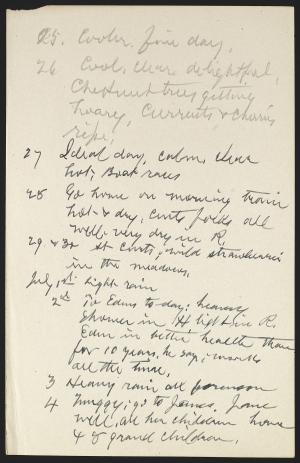 25. Cooler. fine day,
26 Cool, clear delightful,
Chestnut trees getting
hoary, Currants & cherries
ripe,
27 Ideal day, calm, clear
hot; Boat races
28 Go home on morning train
hot & dry, folks all
well, very dry in R.
29 & 30 at wild strawberries
in the meadows,
July 1st light rain
2nd To Edens to day; heavy
shower in H light in R.
Eden in better health than
for 10 years, he says; works
all the time,
3 Heavy rain all forenoon
4 Muggy; go to Janes, Jane
well, all her children home
4 & grand children,